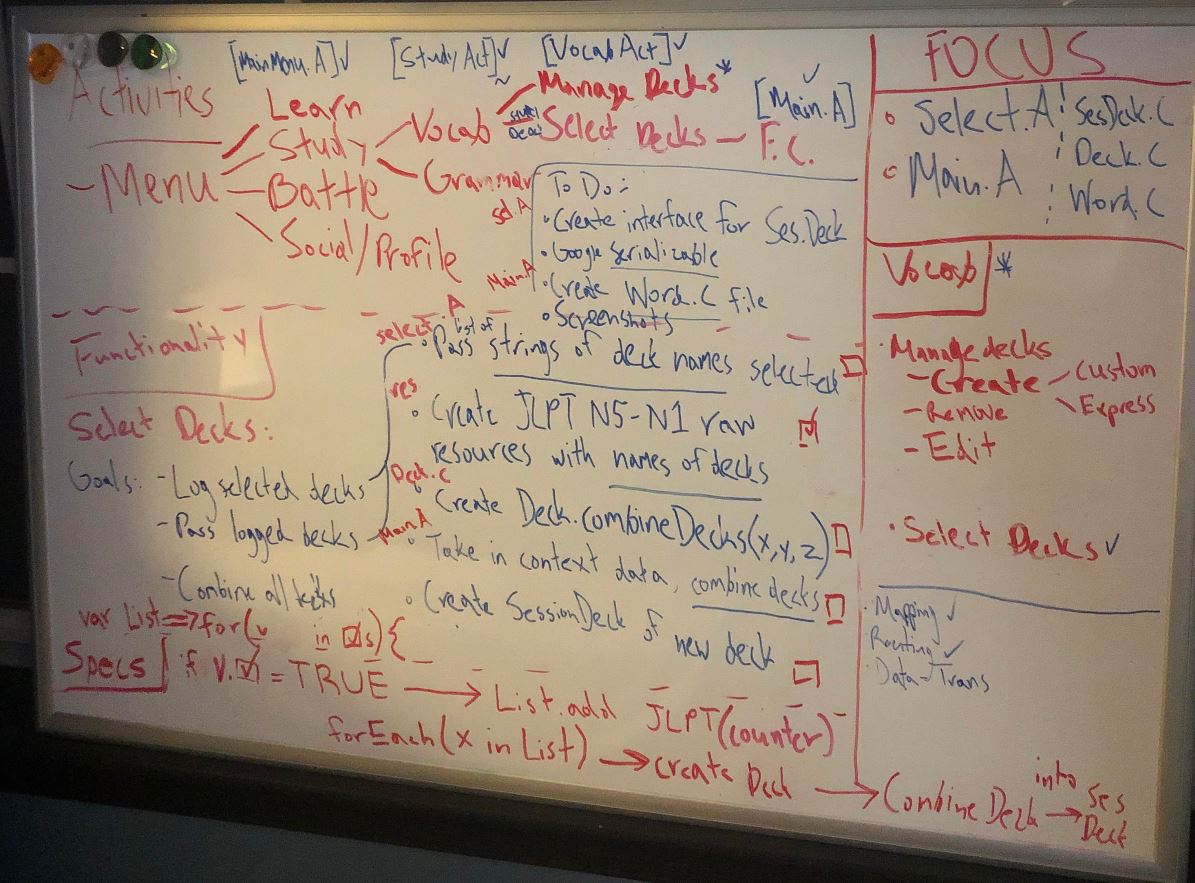 [MainMenu.A]✓ [Study Act]✓ [Vocab Act]✓
Activities
- Menu
Learn
Study
Battle
Social/Profile
Vocab
Grammar
Manage Decks*
Select Decks - F.C.
✓
[Main.A]
To Do:
• Create interface for Ses.Deck
• Google Serializable
Main.A
• Create Word.C file
• Screenshots
Functionality
Select Decks:
Goals: - Log selected decks
- Pass logged decks
- Combine all
select.A
• Pass list of strings of deck names selected ☐
res
• Create JLPT N5-N1 raw ☑
resources with names of decks
Deck.C
• Create Deck.combineDecks(x,y,z) ☐
Main.A
• Take in context data, combine decks ☐
• Create SessionDeck of
new deck ☐
var List => for(v in ☑s){
Specs if v.☑ = TRUE → List.add JLPT(counter)
forEach(x in List) → create Deck → Combine Deck into → Ses Deck
FOCUS
• Select.A
• Main.A
SesDeck.C
Deck.C
Word.C
Vocab *
• Manage decks
- Create
Custom
Express
- Remove
- Edit
• Select Decks ✓
• Mapping ✓
• Routing ✓
• Data-Trans